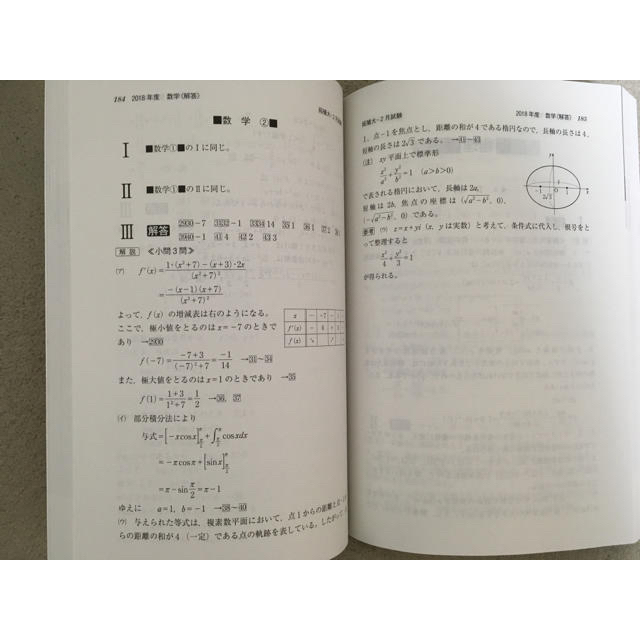 184 2018年度 数学〈解答〉
■数 学 ②■
Ⅰ ■数学①■のⅠに同じ。
Ⅱ ■数学①■のⅡに同じ。
Ⅲ 解答 2930－7 3132－1 3334 14 35 1 36 1 37 2
3940－1 41 4 42 2 43 3
解説 ≪小問3問≫
(ア) f'(x)=1･(x²+7)−(x+3)･2x/(x²+7)²
=−(x−1)(x+7)/(x²+7)²
よって, f(x) の増減表は右のようになる。
x … −7 …
f'(x) − 0 +
f(x) ↘ ↗
ここで, 極小値をとるのは x=−7 のときで
あり →2930
f(−7)=−7+3/(−7)²+7=−1/14 →31～34
また, 極大値をとるのは x=1 のときであり →35
f(1)=1+3/1²+7=1/2 →36, 37
(イ) 部分積分法により
与式=[−x cos x]π/2^π+∫π/2^π cos x dx
=−π cos π+[sin x]π/2^π
=π−sin π/2=π−1
ゆえに a=1, b=−1 →38～40
(ウ) 与えられた等式は, 複素数平面において, 点1からの距離と点
らの距離の和が4（一定）である点の軌跡を表している。したがって,
2018年度 数学〈解答〉 185
1, 点−1を焦点とし, 距離の和が4である楕円なので, 長軸の長さは4,
短軸の長さは2√3である。 →41～43
(注) xy平面上で標準形
x²/a²+y²/b²=1 (a>b>0)
で表される楕円において, 長軸は2a,
短軸は2b, 焦点の座標は (√a²−b², 0),
(−√a²−b², 0) である。
参考 (ウ) z=x+yi (x, yは実数) と考えて, 条件式に代入し, 根号をと
って整理すると
x²/4+y²/3=1
が得られる。